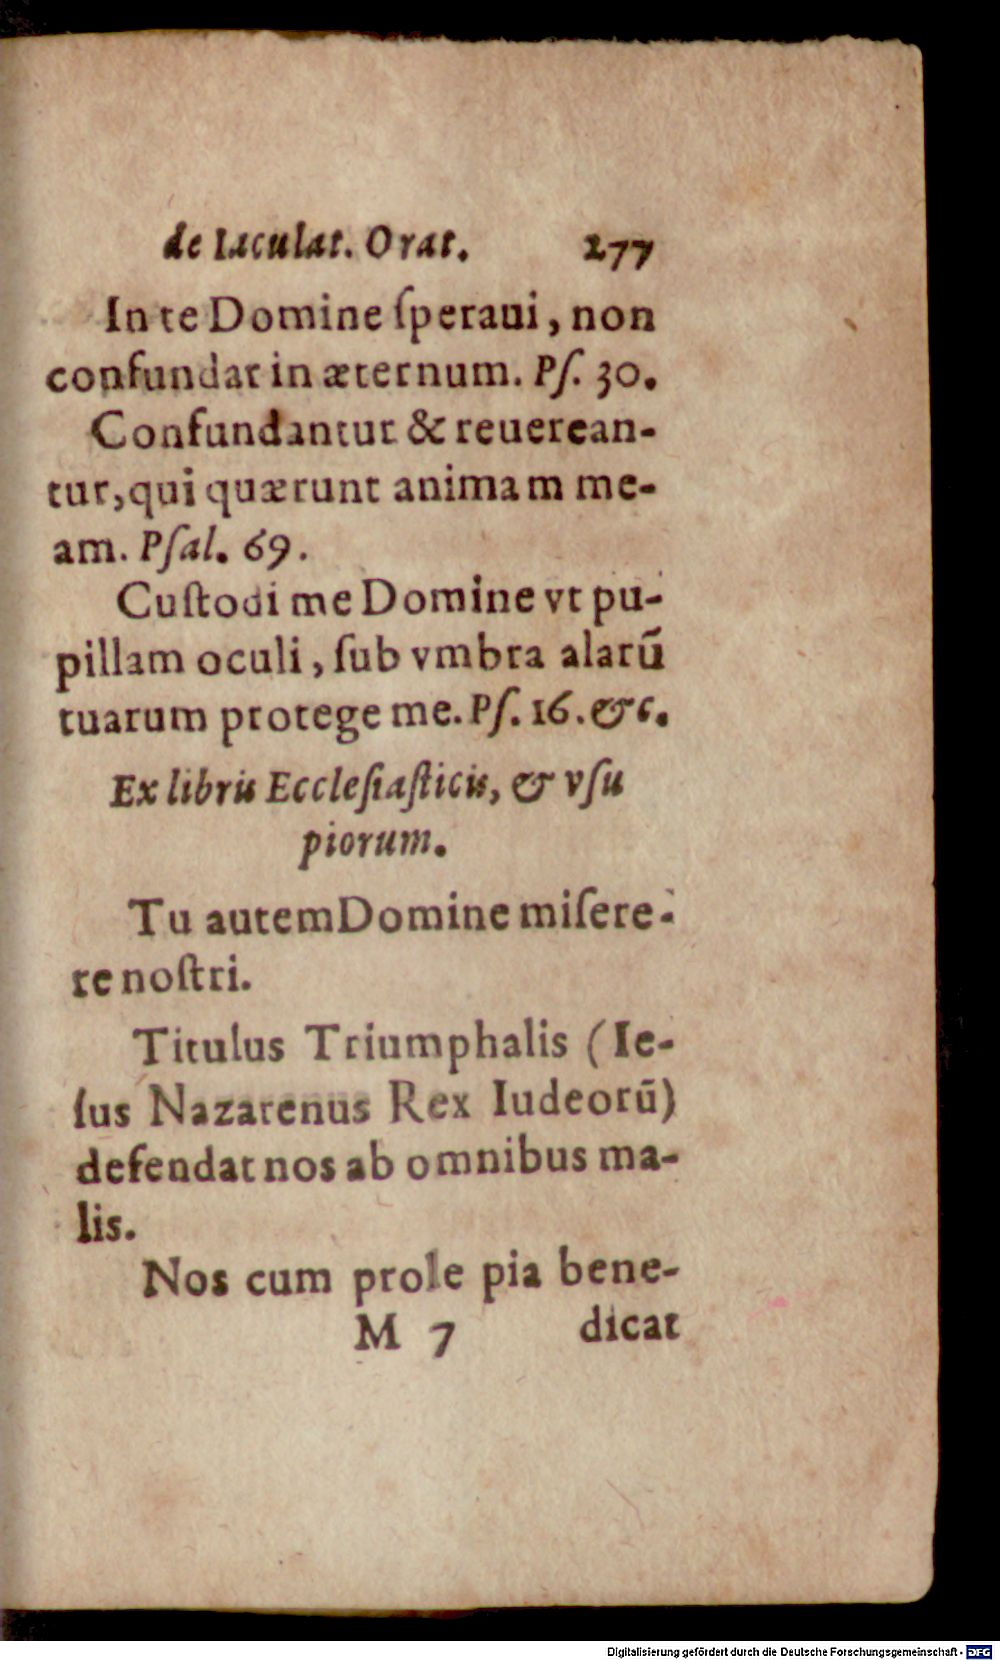 de Iaculat. Orat. 277
In te Domine ſperaui, non
confundar in æternum. Pſ. 30.
Confundantur & reuerean-
tur, qui quærunt animam me-
am. Pſal. 69.
Cuſtodi me Domine vt pu-
pillam oculi, ſub vmbra alarū
tuarum protege me. Pſ. 16. &c.
Ex libris Eccleſiaſticis, & vſu
piorum.
Tu autem Domine miſere-
re noſtri.
Titulus Triumphalis (Ie-
ſus Nazarenus Rex Iudeorū)
defendat nos ab omnibus ma-
lis.
Nos cum prole pia bene-
M 7 dicat
Digitalisierung gefördert durch die Deutsche Forschungsgemeinschaft - DFG